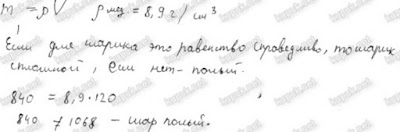 m = ρV ρ мед = 8,9 г/см³
Если для шарика это равенство справедливо, то шарик
сплошной, если нет - полый.
840 = 8,9 · 120
840 ≠ 1068 – шар полый.